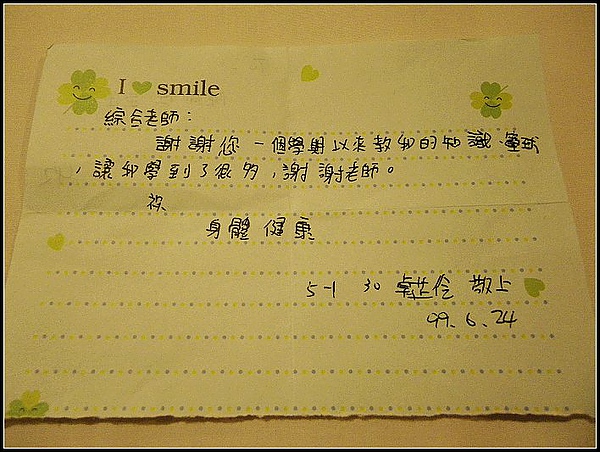 I smile
綜合老師：
謝謝您一個學期以來教我的知識、
，讓我學到了很多，謝謝老師。
祝
身體健康
5-1 30 卓芷伶 敬上
99.6.24